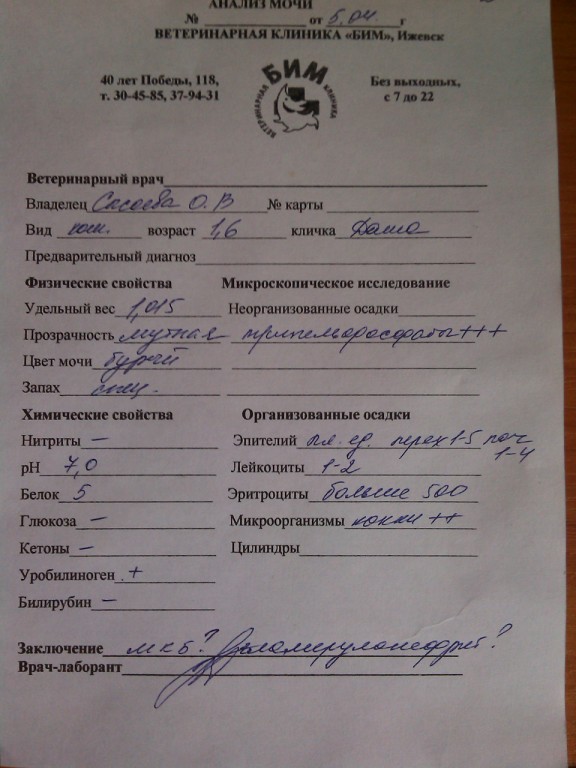 АНАЛИЗ МОЧИ
№ от 5.04. г
ВЕТЕРИНАРНАЯ КЛИНИКА «БИМ», Ижевск
40 лет Победы, 118,
т. 30-45-85, 37-94-31
БИМ
ВЕТЕРИНАРНАЯ КЛИНИКА
Без выходных,
с 7 до 22
Ветеринарный врач
Владелец О.В № карты
Вид кош. возраст 1,6 кличка Даша
Предварительный диагноз
Физические свойства Микроскопическое исследование
Удельный вес 1,015 Неорганизованные осадки
Прозрачность мутная трипельфосфаты +++
Цвет мочи бурый
Запах спец.
Химические свойства Организованные осадки
Нитриты – Эпителий пл. ед. перех 1-5 поч 1-4
pH 7,0 Лейкоциты 1-2
Белок 5 Эритроциты больше 500
Глюкоза – Микроорганизмы кокки ++
Кетоны – Цилиндры
Уробилиноген +
Билирубин –
Заключение МКБ? Гломерулонефрит?
Врач-лаборант